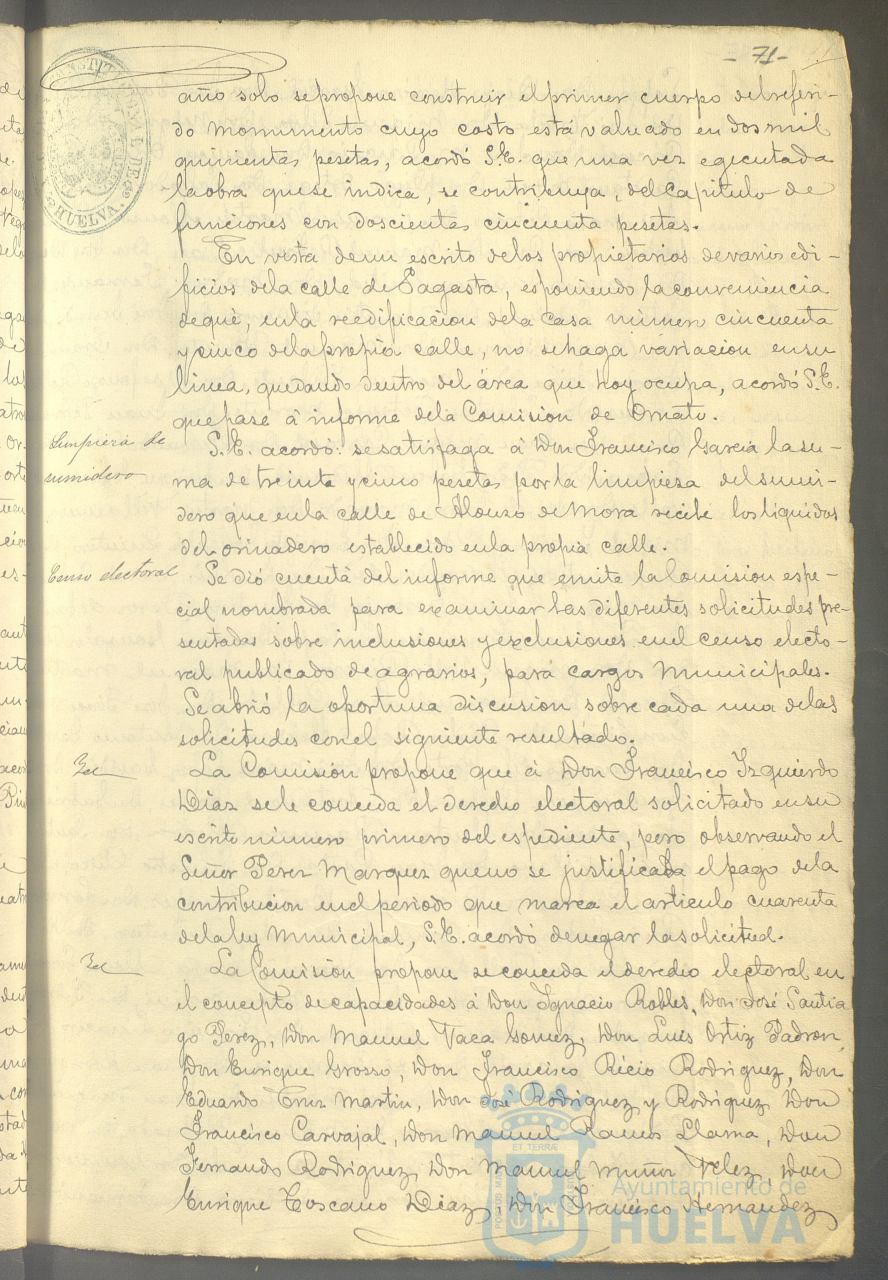 - 71 -
año solo se propone construir el primer cuerpo del referi-
do monumento cuyo costo está valuado en dos mil
quinientas pesetas, acordó S.E. que una vez egecutada
la obra que se indica, se contribuya, del Capitulo de
funciones con doscientas cincuenta pesetas.
En vista de un escrito de los propietarios de varios edi-
ficios de la calle de Sagasta, esponiendo la conveniencia
de qué, en la reedificacion de la Casa número cincuenta
y cinco de la propia calle, no se haga variacion en su
linea, quedando dentro del área que hoy ocupa, acordó S.E.
que pase á informe de la Comision de Ornato.
Limpieza de
sumidero
S.E. acordó: se satisfaga á Don Francisco Garcia la su-
ma de treinta y cinco pesetas por la limpiesa del sumi-
dero que en la calle de Alonso de Mora recibe los liquidos
del orinadero establecido en la propia calle.
Censo electoral
Se dió cuenta del informe que emite la Comision espe-
cial nombrada para examinar las diferentes solicitudes pre-
sentadas sobre inclusiones y exclusiones en el censo electo-
ral publicado de agrarios, para cargos Municipales.
Se abrió la oportuna discusion sobre cada una de las
solicitudes con el siguiente resultado.
La Comisión propone que á Don Francisco Izquierdo
Diaz se le conceda el derecho electoral solicitado en su
escrito número primero del espediente, pero observando el
Señor Perez Marquez que no se justificaba el pago de la
contribucion en el periodo que marca el articulo cuarenta
de la ley Municipal, S.E. acordó denegar la solicitud.
La Comisión propone se conceda el derecho electoral en
el concepto de capacidades á Don Ignacio Robles, Don José Santia
go Perez, Don Manuel Vaca Gomez, Don Luis Ortiz Padron,
Don Enrique Grosso, Don Francisco Récio Rodriguez, Don
Eduardo Cruz Martin, Don José Rodriguez y Rodriguez, Don
Francisco Carvajal, Don Manuel Ramos Llama, Don
Fernando Rodriguez, Don Manuel Muñoz Velez, Don
Enrique Toscano Diaz, Don Francisco Hernandez
HUELVA.
Ayuntamiento de
HUELVA